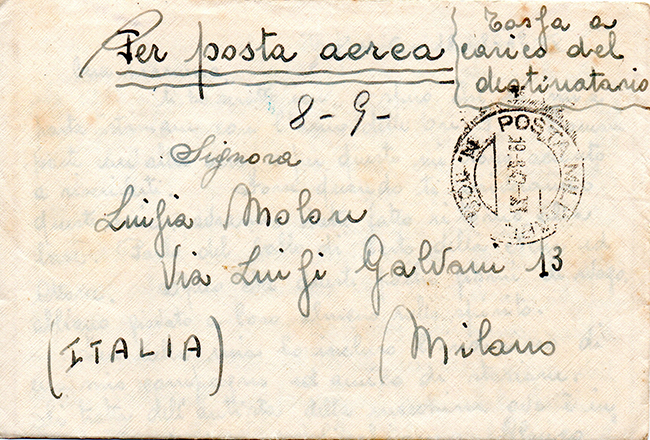 Per posta aerea
Tassa a
carico del
destinatario
8-9-
Signora
Luigia Molon
Via Luigi Galvani 13
(ITALIA)
(Milano
POSTA MILITARE N.